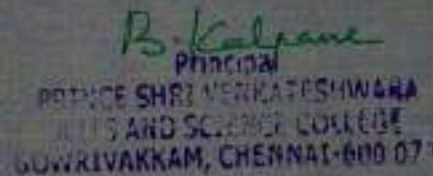 B. Kalpana
Principal
PRINCE SHRI VENKATESHWARA
ARTS AND SCIENCE COLLEGE
GOWRIVAKKAM, CHENNAI-600 07